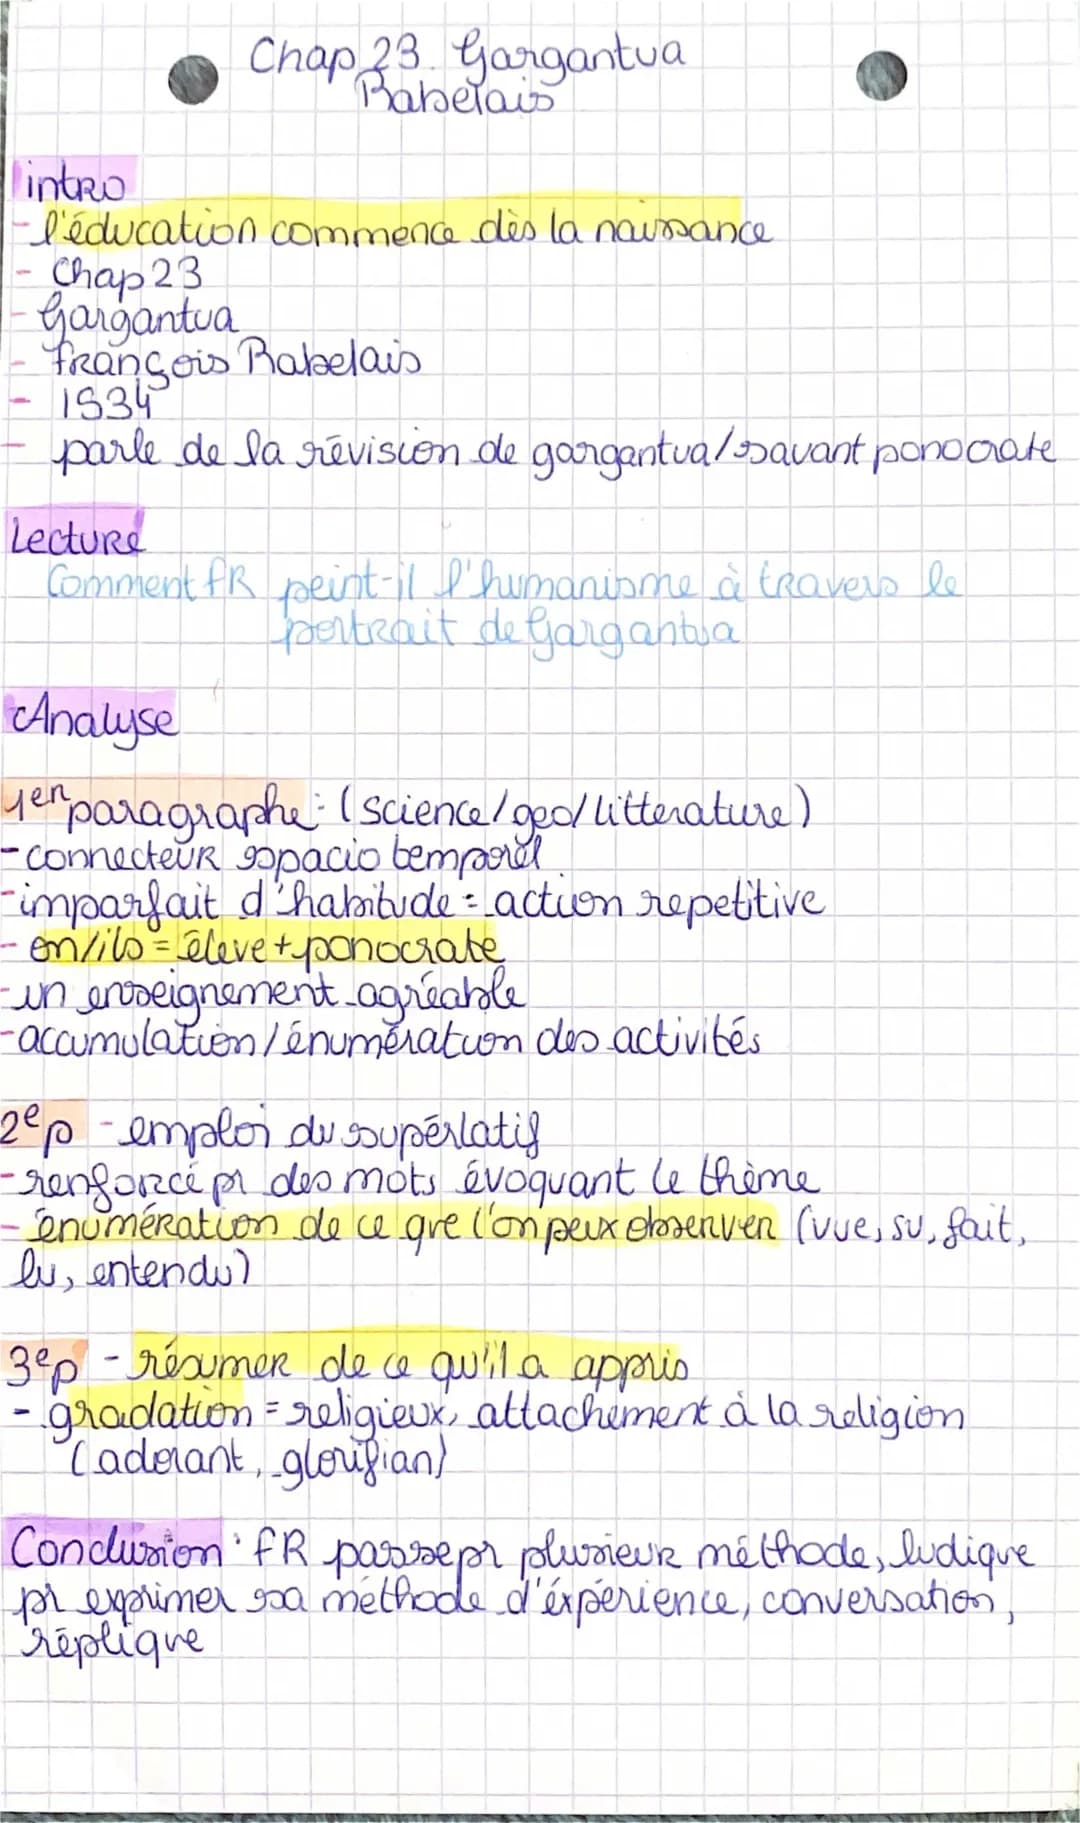 Chap 23. Gargantua
Rabelais
intro
- l'éducation commence dès la naissance
- Chap 23
- Gargantua
- François Rabelais
- 1534
- parle de la révision de gargantua/savant ponocrate
Lecture
Comment FR peint-il l'humanisme à travers le
portrait de Gargantua
Analyse
1er paragraphe : (science/geo/litterature)
- connecteur spacio temporel
- imparfait d'habitude = action repetitive
- on/ils = élève + ponocrate
- un enseignement agréable
- accumulation/énumération des activités
2e p - emploi du supérlatif
- renforcé pr des mots évoquant le thème
- énumération de ce que l'on peux observer (vue, su, fait,
lu, entendu)
3e p - résumer de ce qu'il a appris
- gradation = religieux, attachement à la religion
(adorant, glorifian)
Conclusion : FR passe pr plusieur méthode, ludique
pr exprimer sa méthode d'éxpérience, conversation,
réplique